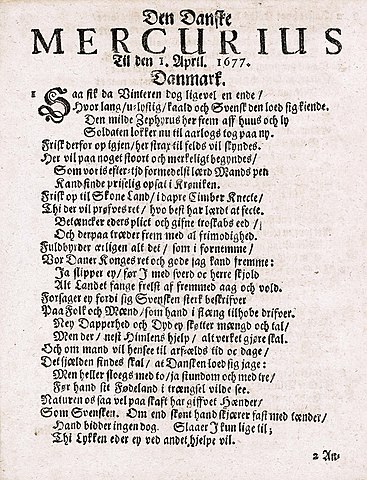 Den Danske
MERCURIUS
Til den 1. April. 1677.
Danmark.
1 Saa fik da Vinteren dog ligevel en ende/
Hvor lang/ u-lystig/ kaald och Svensk den loed sig kiende.
Den milde Zephyrus her frem aff huus och ly
Soldaten lokker nu til aarlogs tog paa ny.
Frisk derfor op igjen/ her strax til felds vil skyndes.
Her vil paa noget stoort och merkeligt begyndes/
Som vor is efter-tid formedelst lærd Mands pen
Kand finde priselig opsat i Krøniken.
Frisk op til Skone Land/ i dapre Cimber Knecte/
Thi der vil prøfves ret/ hvo best har lærdt at fecte.
Betæncker eders plict och gifne troskabs eed/
Och derpaa træder frem med al frimodighed.
Fuldbyrder ærligen alt det/ som i fornemme/
Vor Daner Konges ret och gode jag kand fremme:
Ja slipper ey/ før I med sverd oc herre skjold
Alt Landet fange frelst af fremmed aag och vold.
Forsager ey fordi sig Svensken sterk beskrifver
Paa Folk och Mænd/ som hand i stæng tilhobe drifver.
Ney Dapperhed och Dyd ey skøtter mængd och tal/
Men der/ nest Himlens hjelp/ alt verket gjøre skal.
Och om mand vil hensee til arfælds tid oc dage/
Det sjælden findes skal/ at Dansken loed sig jage:
Men heller sloegs med to/ ja stundom och med tre/
Før hand sit Fødeland i trængsel vilde see.
Naturen os saa vel paa skaft har giffvet Hænder/
Som Svensken. Om end skønt hand skjærer fast med tænder/
Hand bidder ingen dog. Slaaer I kun lige til;
Thi Lykken eder ey ved andet hjelpe vil.
2 An-